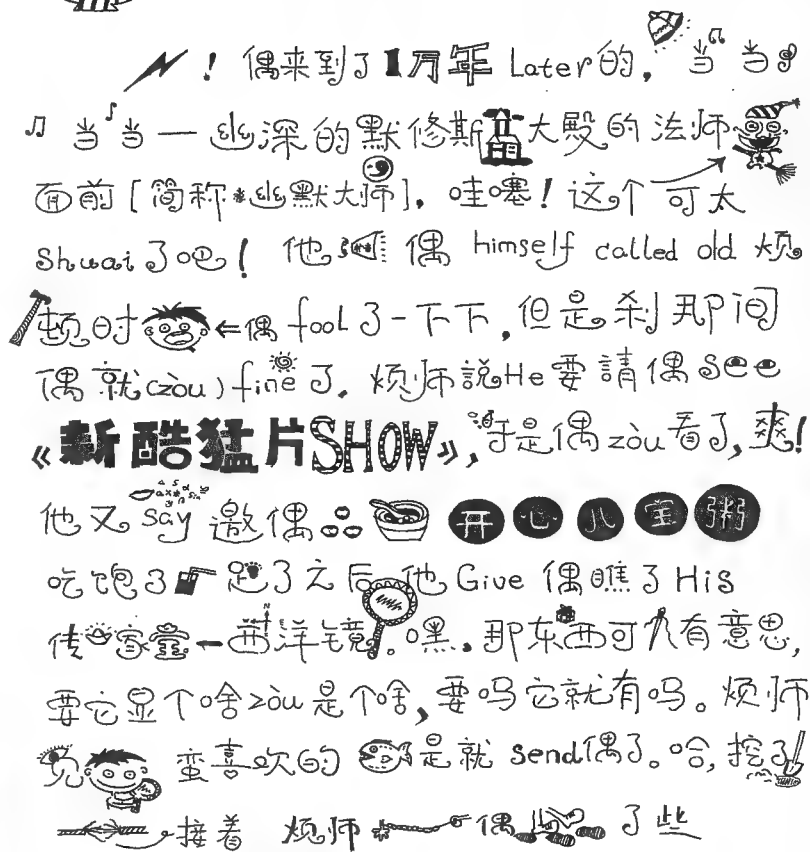 ！偶来到了1万年Later的，当当
当当一幽深的默修斯大殿的法师
面前[简称*幽默大师]．哇噻！这个可太
Shuai了吧！他偶himself called old烦
顿时←偶fool了一下下，但是刹那间
偶就(zòu)fine了．烦师説He要請偶See
《新酷猛片SHOW》，于是偶zòu看了，爽！
他又say邀偶开心八宝粥
吃饱了足了之后他Give偶瞧了His
传家宝一西洋镜。嘿，那东西可有意思，
要它显个啥zòu是个啥，要吗它就有吗。烦师
见蛮喜欢的是就send偶了。哈，挖了
接着烦师偶了些